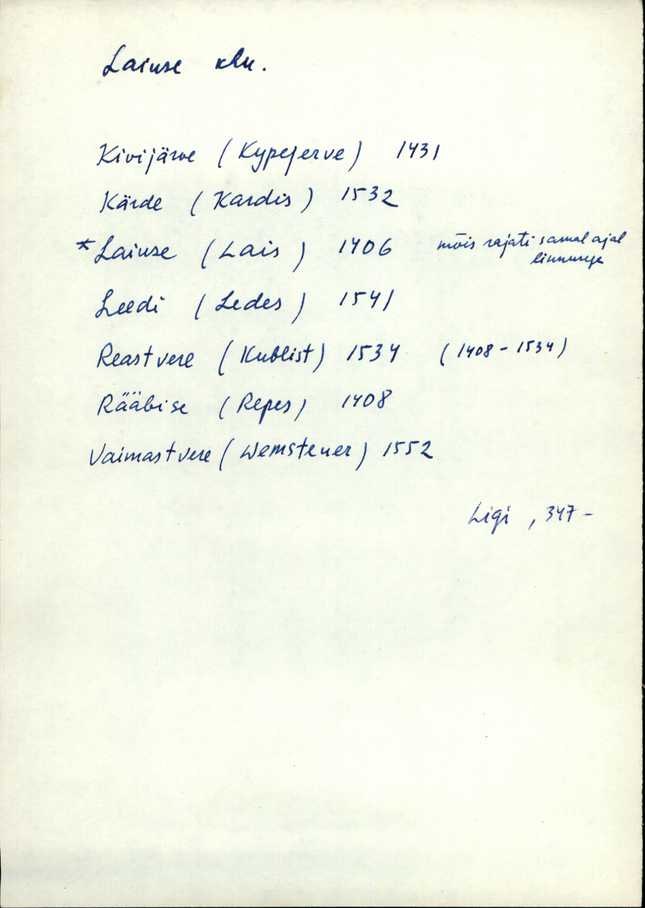 Laiuse khn.
Kivijärve (Kypejerve) 1431
Kärde (Kardis) 1532
* Laiuse (Lais) 1406 mõis rajati samal ajal
linnusega
Leedi (Ledes) 1541
Reastvere (Kublist) 1534 (1408-1534)
Rääbise (Repes) 1408
Vaimastvere (Wemstever) 1552
Ligi, 347-